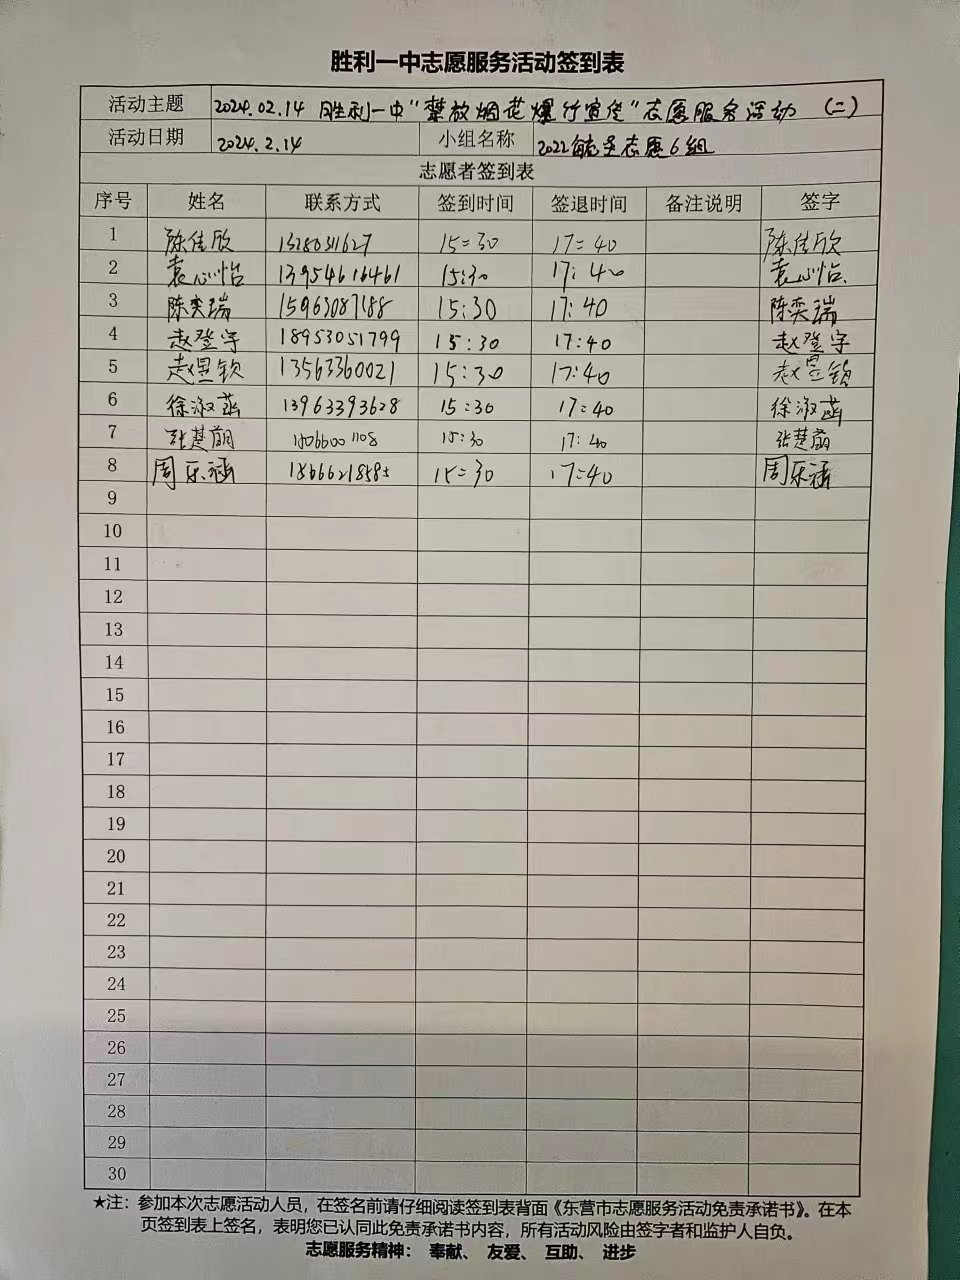 胜利一中志愿服务活动签到表
活动主题 2024.02.14 胜利一中"禁放烟花爆竹宣传"志愿服务活动 (二)
活动日期 2024.2.14 小组名称 2022能圣志愿6组
志愿者签到表
序号 姓名 联系方式 签到时间 签退时间 备注说明 签字
1 陈佳欣 1328031627 15:30 17:40 陈佳欣
2 袁心怡 13954616461 15:30 17:40 袁心怡
3 陈奕瑞 15963087188 15:30 17:40 陈奕瑞
4 赵登宇 18953051799 15:30 17:40 赵登宇
5 赵昱钦 13563360021 15:30 17:40 赵昱钦
6 徐淑菡 13963393628 15:30 17:40 徐淑菡
7 张楚萌 15:30 17:40 张楚萌
8 周乐涵 15:30 17:40 周乐涵
9
10
11
12
13
14
15
16
17
18
19
20
21
22
23
24
25
26
27
28
29
30
★注：参加本次志愿活动人员，在签名前请仔细阅读签到表背面《东营市志愿服务活动免责承诺书》。在本
页签到表上签名，表明您已认同此免责承诺书内容，所有活动风险由签字者和监护人自负。
志愿服务精神： 奉献、 友爱、 互助、 进步